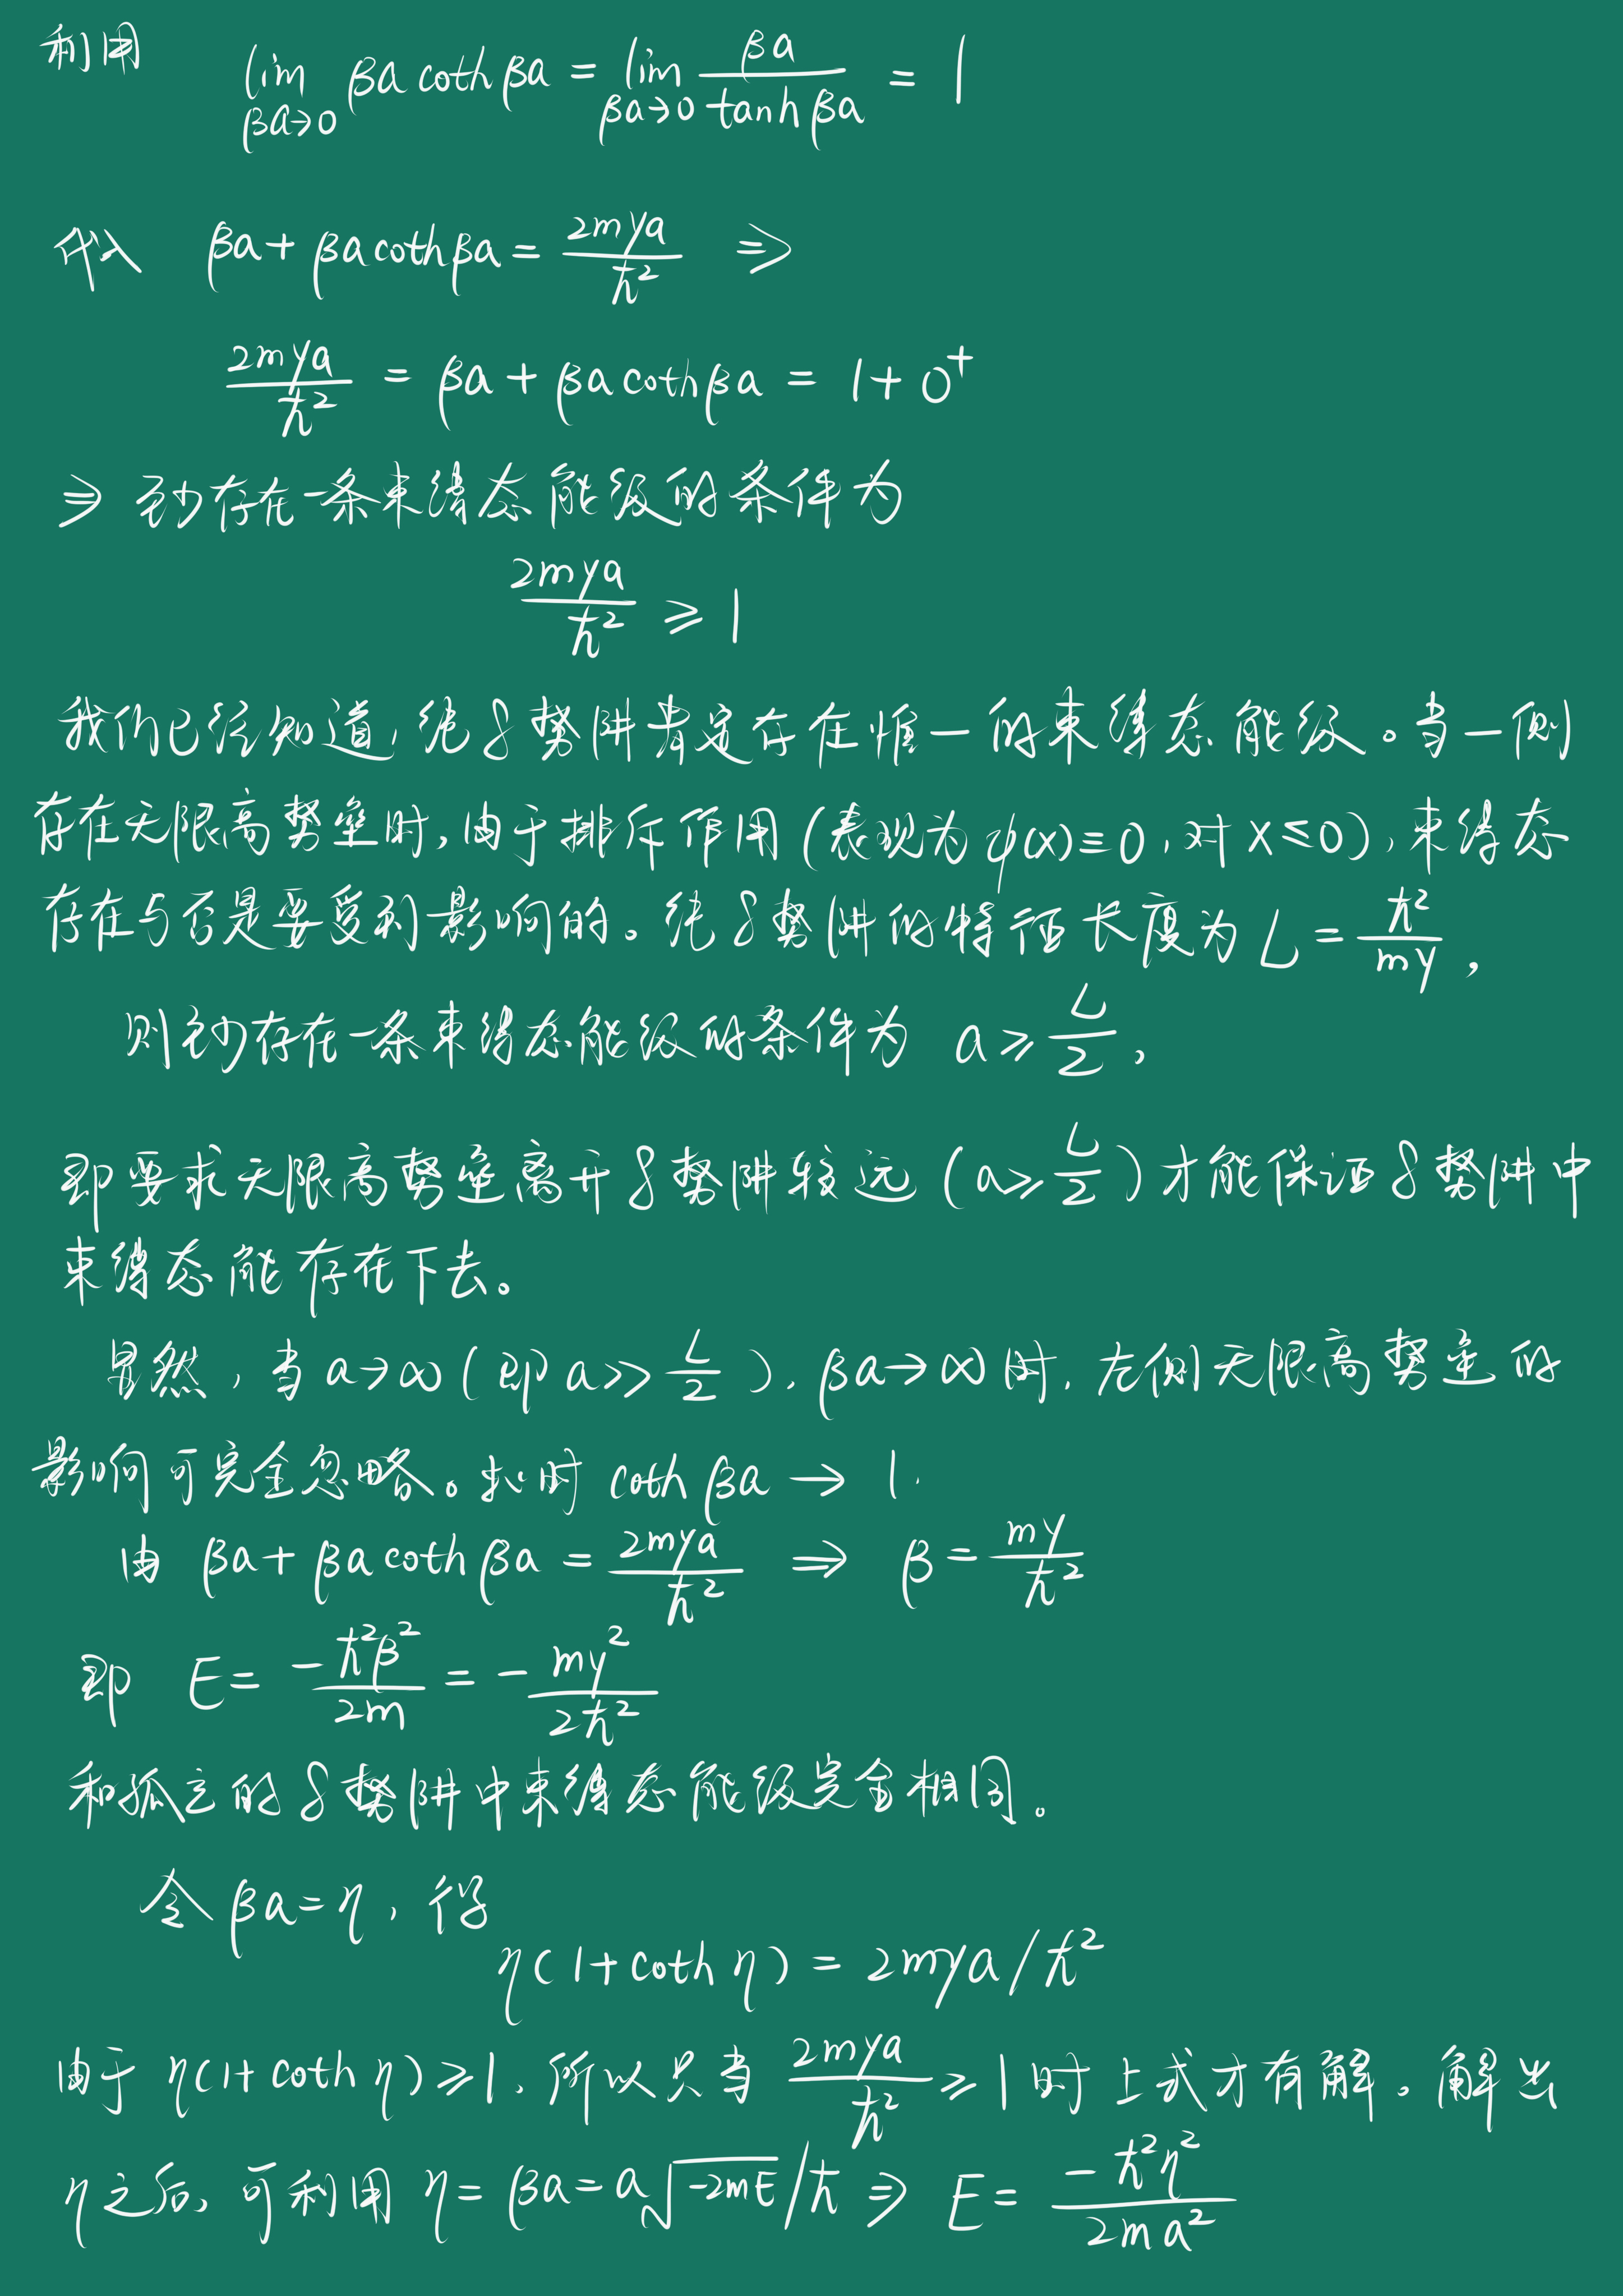 利用 lim_{βa→0} βa coth βa = lim_{βa→0} βa / tanh βa = 1
代入 βa + βa coth βa = 2mγa / ħ² ⇒
2mγa / ħ² = βa + βa coth βa = 1 + 0⁺
⇒ 至少存在一条束缚态能级的条件为
2mγa / ħ² ≥ 1
我们已经知道,纯δ势阱肯定存在惟一的束缚态能级。当一侧
存在无限高势垒时,由于排斥作用(表现为ψ(x)≡0,对x≤0),束缚态
存在与否是要受到影响的。纯δ势阱的特征长度为 L = ħ² / mγ,
则至少存在一条束缚态能级的条件为 a ≥ L/2,
即要求无限高势垒离开δ势阱较远(a ≥ L/2)才能保证δ势阱中
束缚态能存在下去。
显然,当a→∞(即a≫L/2),βa→∞时,左侧无限高势垒的
影响可完全忽略。此时 coth βa → 1.
由 βa + βa coth βa = 2mγa / ħ² ⇒ β = mγ / ħ²
即 E = -ħ²β² / 2m = - mγ² / 2ħ²
和孤立的δ势阱中束缚态能级完全相同。
令βa=η,得
η(1+coth η) = 2mγa/ħ²
由于 η(1+coth η)≥1,所以只当 2mγa / ħ² ≥ 1时上式才有解。解出
η之后,可利用 η = βa = a√(-2mE)/ħ ⇒ E = -ħ²η² / 2ma²